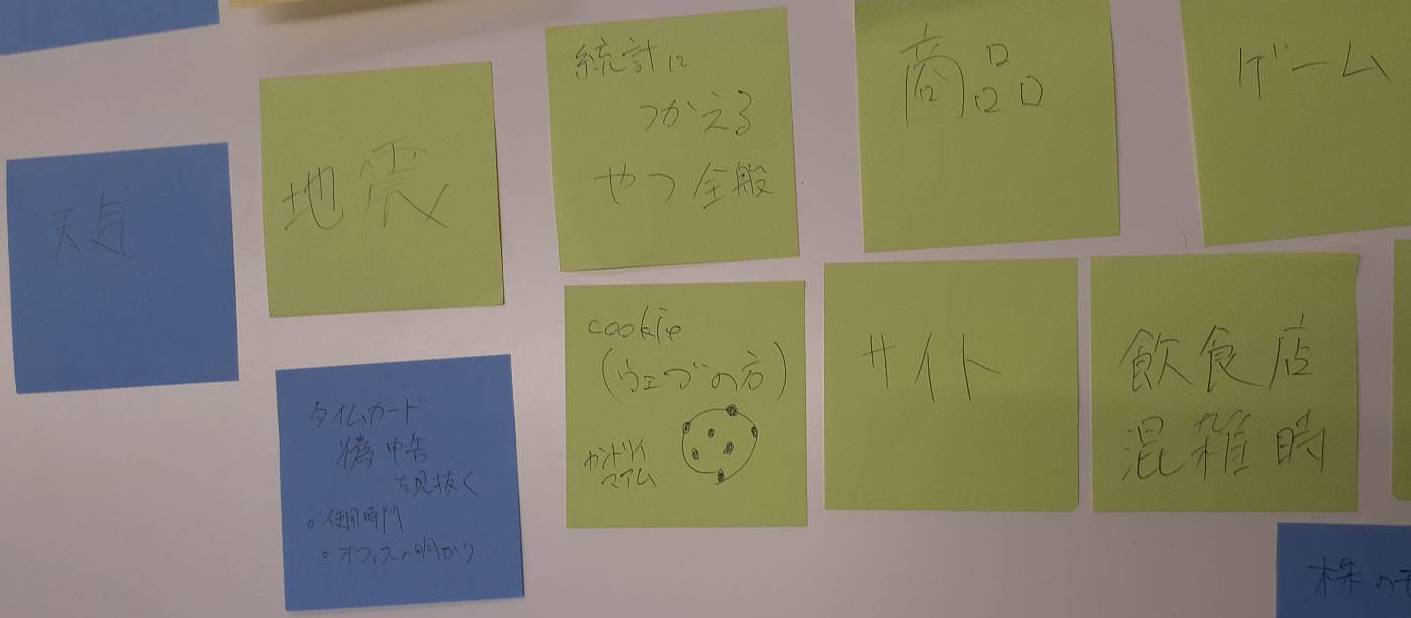 天気
地震
統計に
つかえる
やつ全般
商品
ゲーム
タイムカード
偽申告
を見抜く
。使用時間
。オフィスの明かり
cookie
(ウェブの方)
カントリィ
マアム
サイト
飲食店
混雑時
株の